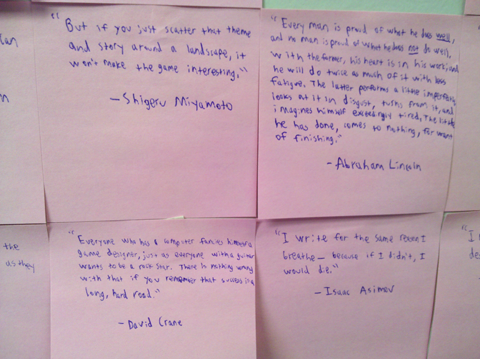 lan
"But if you just scatter that theme
and story around a landscape, it
won't make the game interesting."
—Shigeru Miyamoto
"Every man is proud of what he does well,
and no man is proud of what he does not do well.
With the former, his heart is in his work, and
he will do twice as much of it with less
fatigue. The latter performs a little imperfectly,
looks at it in disgust, turns from it, and
imagines himself exceedingly tired. The little
he has done, comes to nothing, for want
of finishing."
-Abraham Lincoln
the
as they
"Everyone who has a computer fancies himself a
game designer, just as everyone with a guitar
wants to be a rock star. There is nothing wrong
with that if you remember that success is a
long, hard road."
-David Crane
"I write for the same reason I
breathe— because if I didn't, I
would die."
-Isaac Asimov
"I